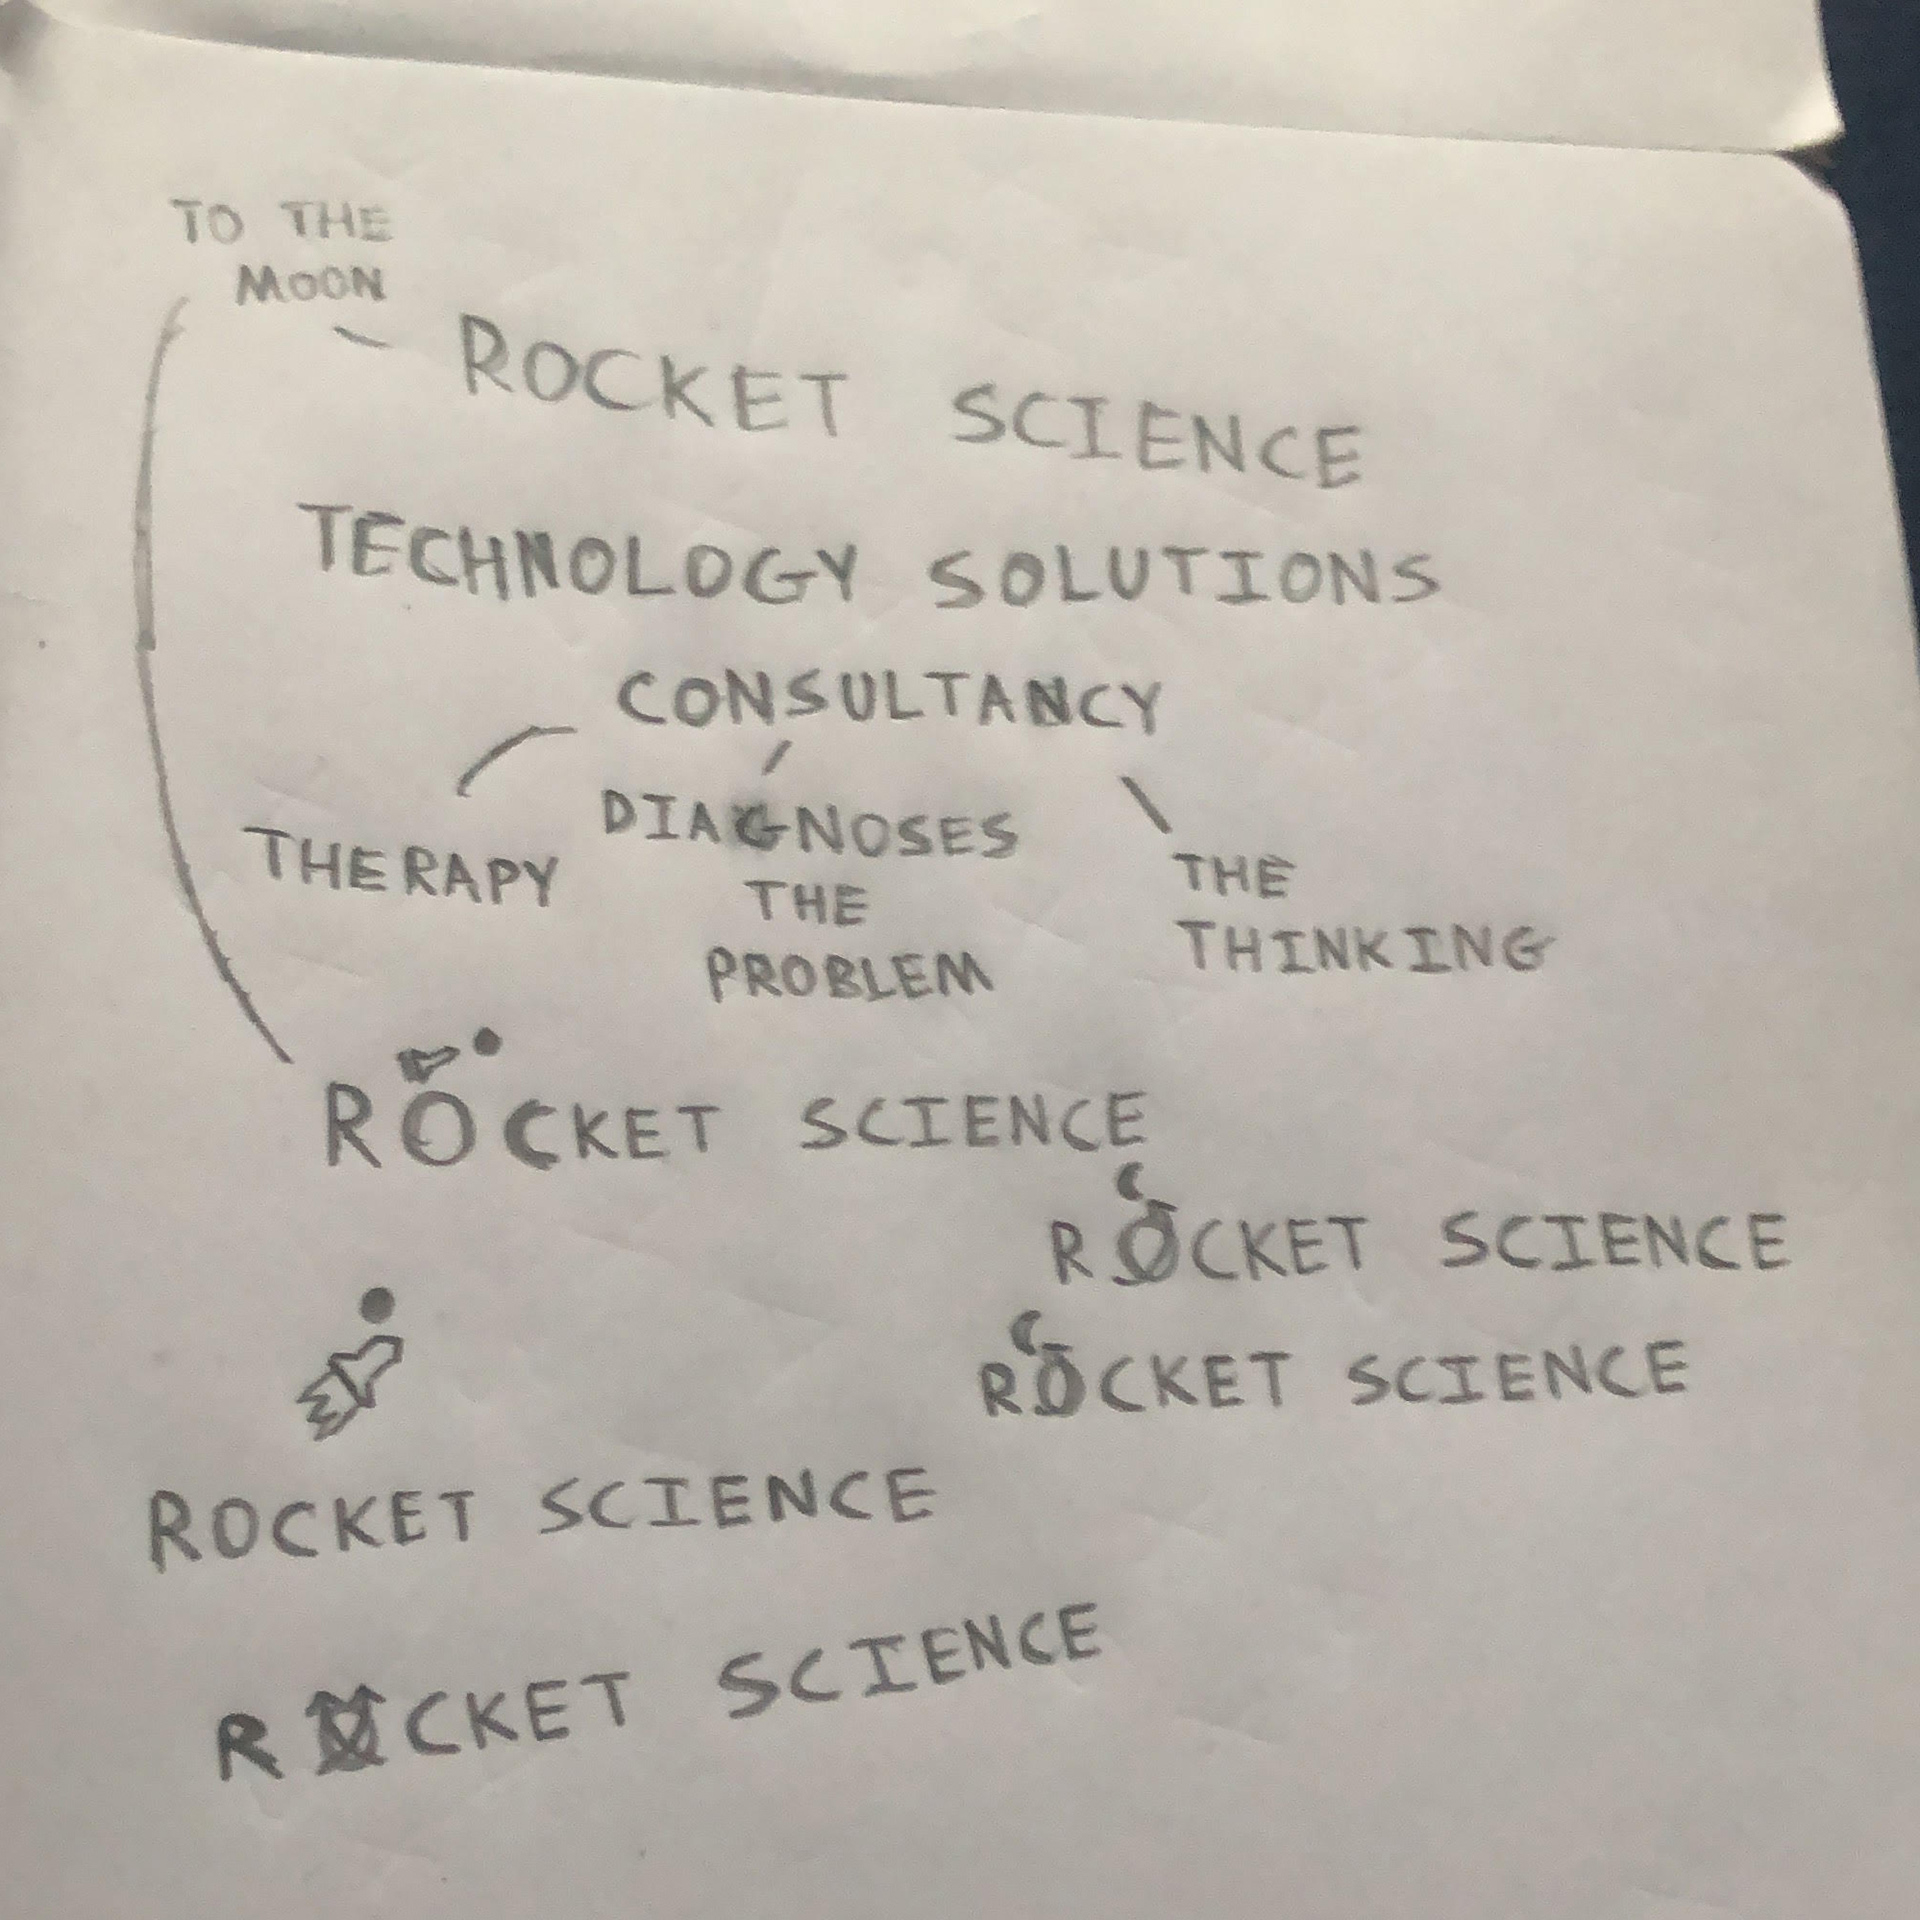 TO THE
MOON
ROCKET SCIENCE
TECHNOLOGY SOLUTIONS
CONSULTANCY
THERAPY
DIAGNOSES
THE
PROBLEM
THE
THINKING
ROCKET SCIENCE
ROCKET SCIENCE
ROCKET SCIENCE
ROCKET SCIENCE
ROCKET SCIENCE